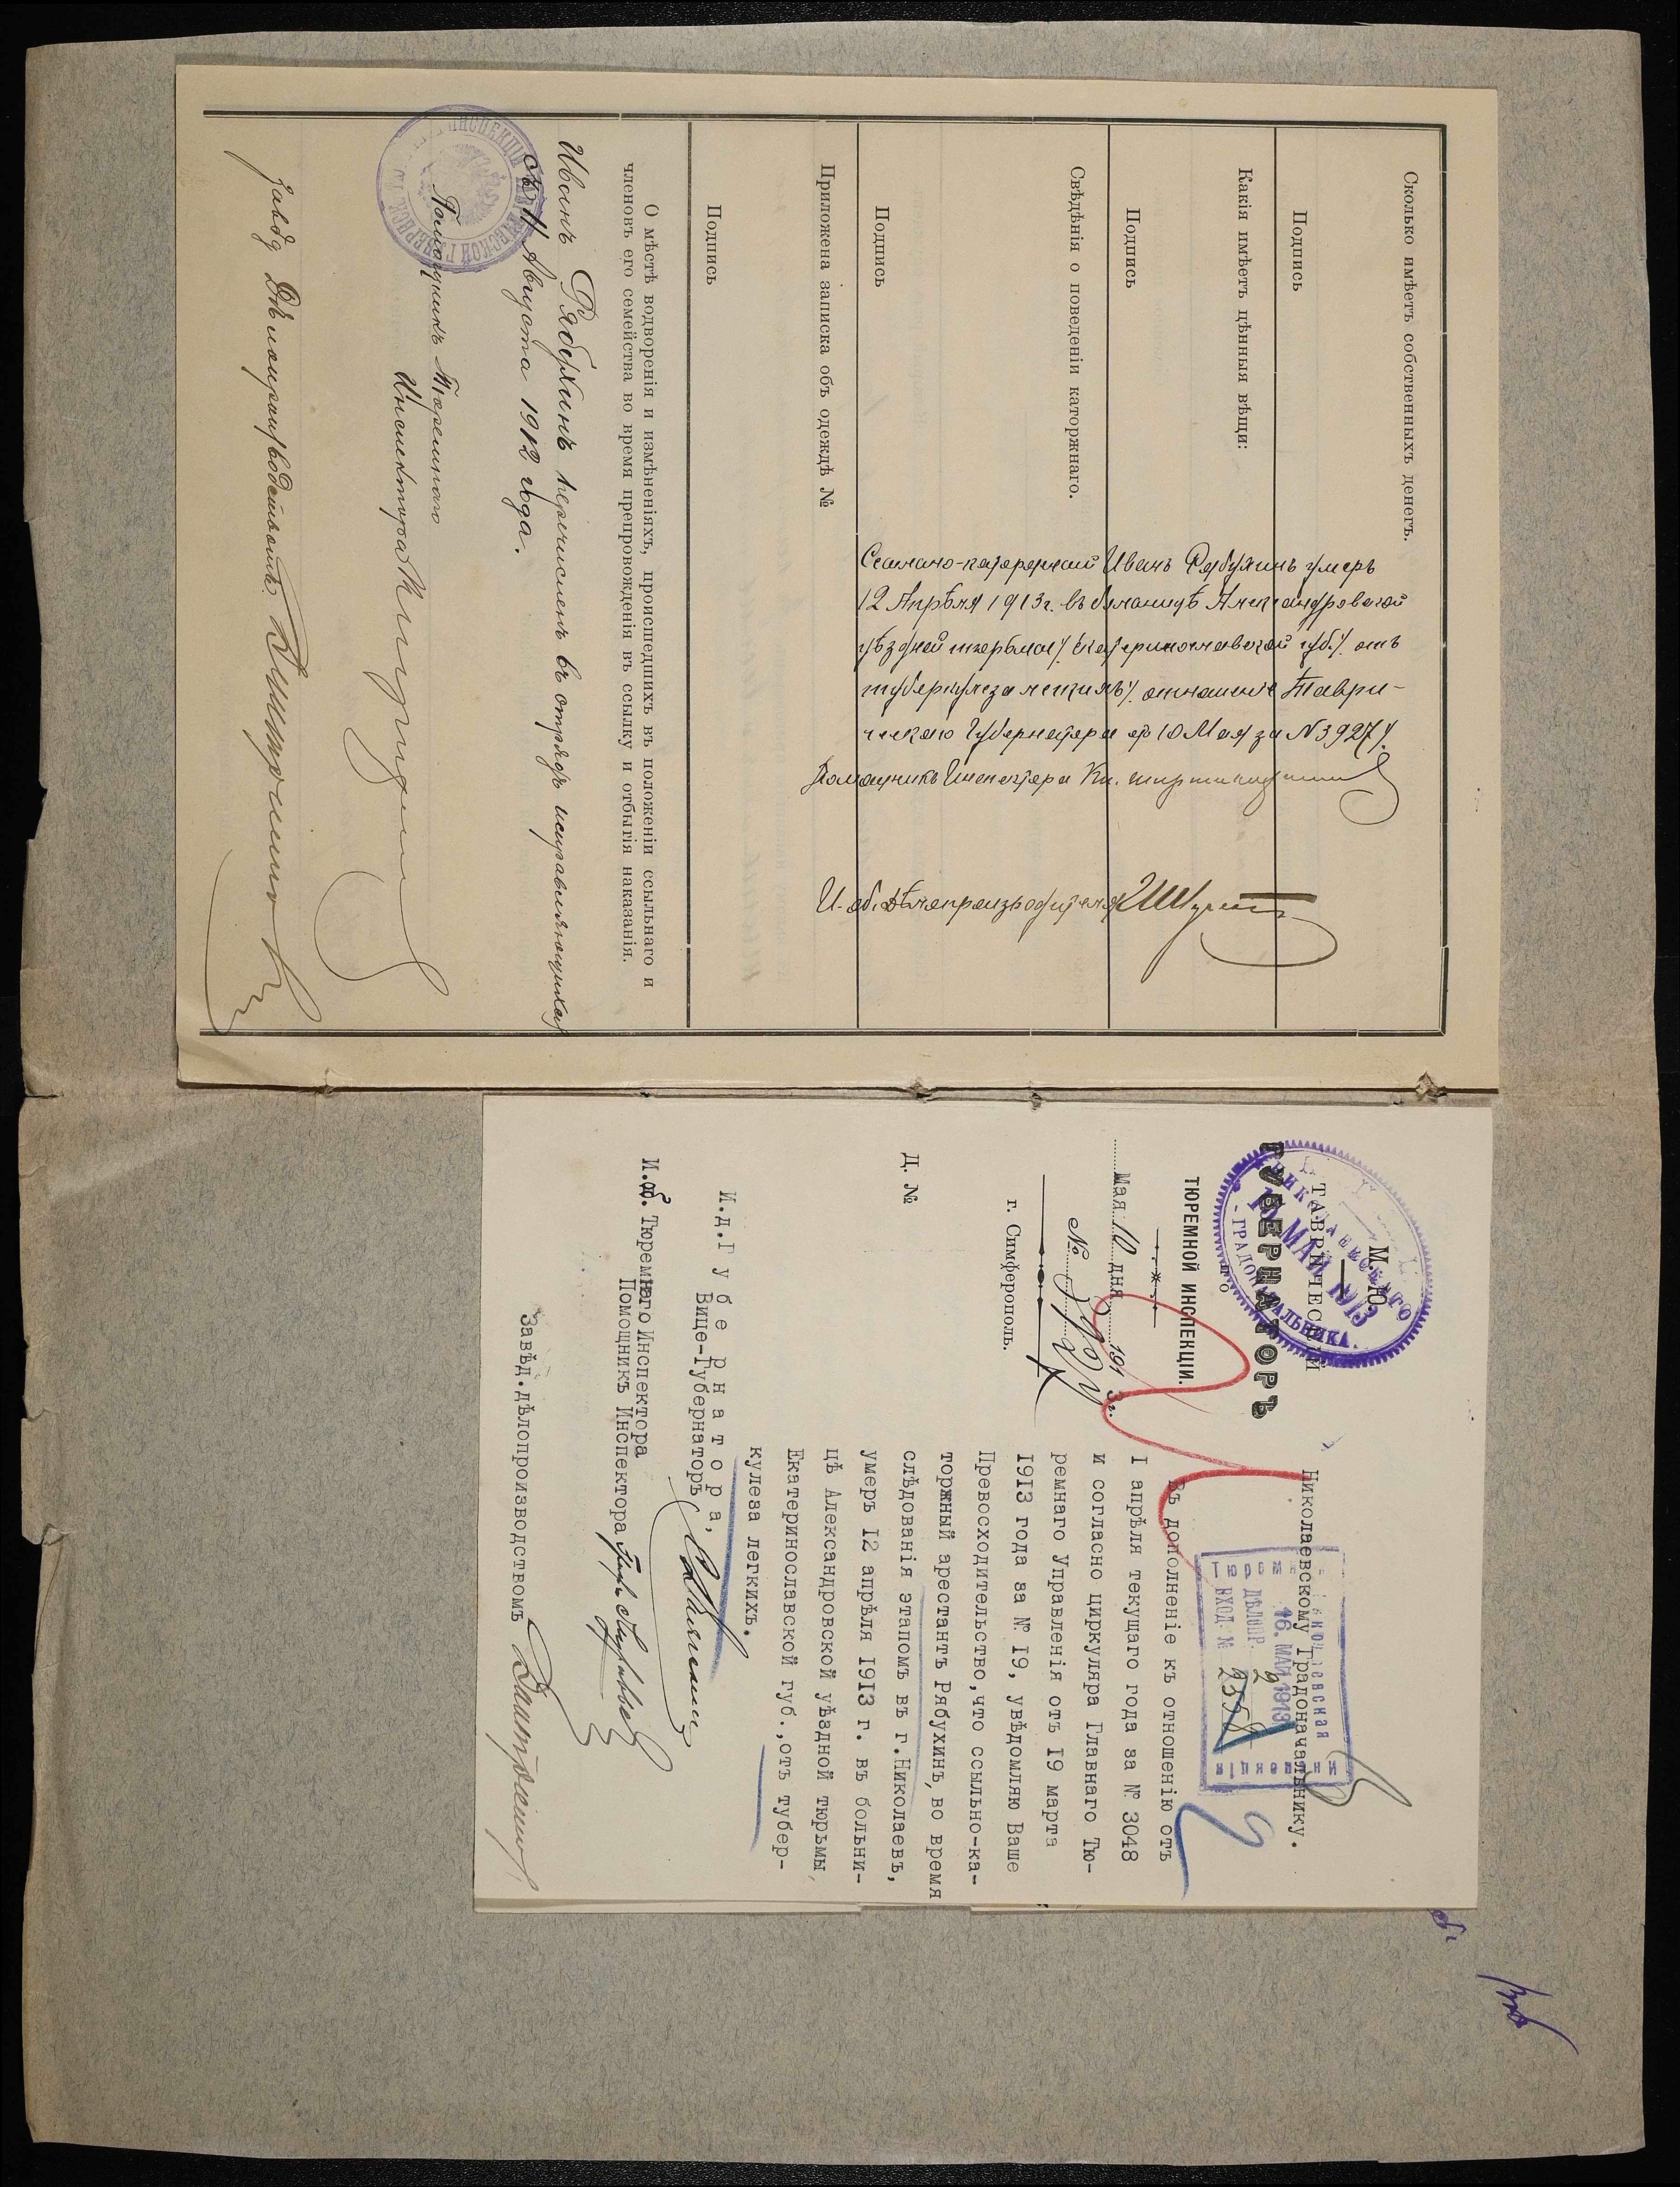 Сколько имѣетъ собственныхъ денегъ.
Подпись
Какія имѣетъ цѣнныя вѣщи:
Подпись
Свѣдѣнія о поведеніи каторжнаго.
Подпись
Приложена записка объ одеждѣ №
Подпись
Ссыльно-каторжный Иванъ Рябухинъ умеръ
12 Апрѣля 1913 г. въ больницѣ Александровской
уѣздной тюрьмы /Екатеринославской губ./ отъ
туберкулеза легкихъ /отношеніе Таври-
ческаго Губернатора отъ 10 Мая за N 3927/.
Помощникъ Инспектора Кн.
И. об. Дѣлопроизводителя
О мѣстѣ водворенія и измѣненіяхъ, происшедшихъ въ положеніи ссыльнаго и
членовъ его семейства во время препровожденія въ ссылку и отбытія наказанія.
Иванъ Рябухинъ перечисленъ въ отрядъ исправляющихся
съ 11 Августа 1912 года.
Помощникъ Тюремнаго
Инспектора
Завѣд. Дѣлопроизводствомъ
М. Ю.
ТАВРИЧЕСКІЙ
ГУБЕРНАТОРЪ
ПО
ТЮРЕМНОЙ ИНСПЕКЦІИ.
Мая 10 дня 1913 г.
№ 3927
г. Симферополь.
Д. №
НИКОЛАЕВСКАГО
15 МАЙ 1913
ГРАДОНАЧАЛЬНИКА
Николаевскому Градоначальнику.
Николаевская
Тюремная
Инспекція
16. МАЙ 1913
ДѢЛОПР. 2
ВХОД. №
Въ дополненіе къ отношенію отъ
I апрѣля текущаго года за № 3048
и согласно циркуляра Главнаго Тю-
ремнаго Управленія отъ 19 марта
1913 года за № 19, увѣдомляю Ваше
Превосходительство,что ссыльно-ка-
торжный арестантъ Рябухинъ, во время
слѣдованія этапомъ въ г.Николаевъ,
умеръ 12 апрѣля 1913 г. въ больни-
цѣ Александровской уѣздной тюрьмы,
Екатеринославской губ.,отъ тубер-
кулеза легкихъ.
И.д.Губернатора,
Вице-Губернаторъ
И.об. Тюремнаго Инспектора
Помощникъ Инспектора
Завѣд.дѣлопроизводствомъ